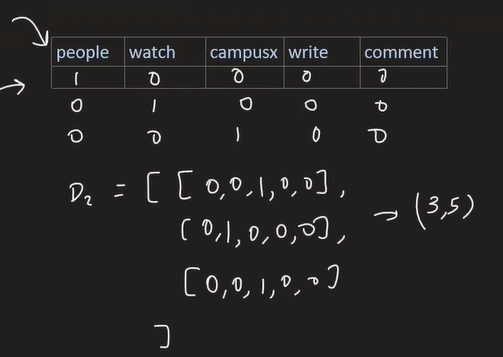 people watch campusx write comment
1 0 0 0 0
0 1 0 0 0
0 0 1 0 0
D₂ = [ [ 0,0,1,0,0],
[0,1,0,0,0], → (3,5)
[0,0,1,0,0]
]